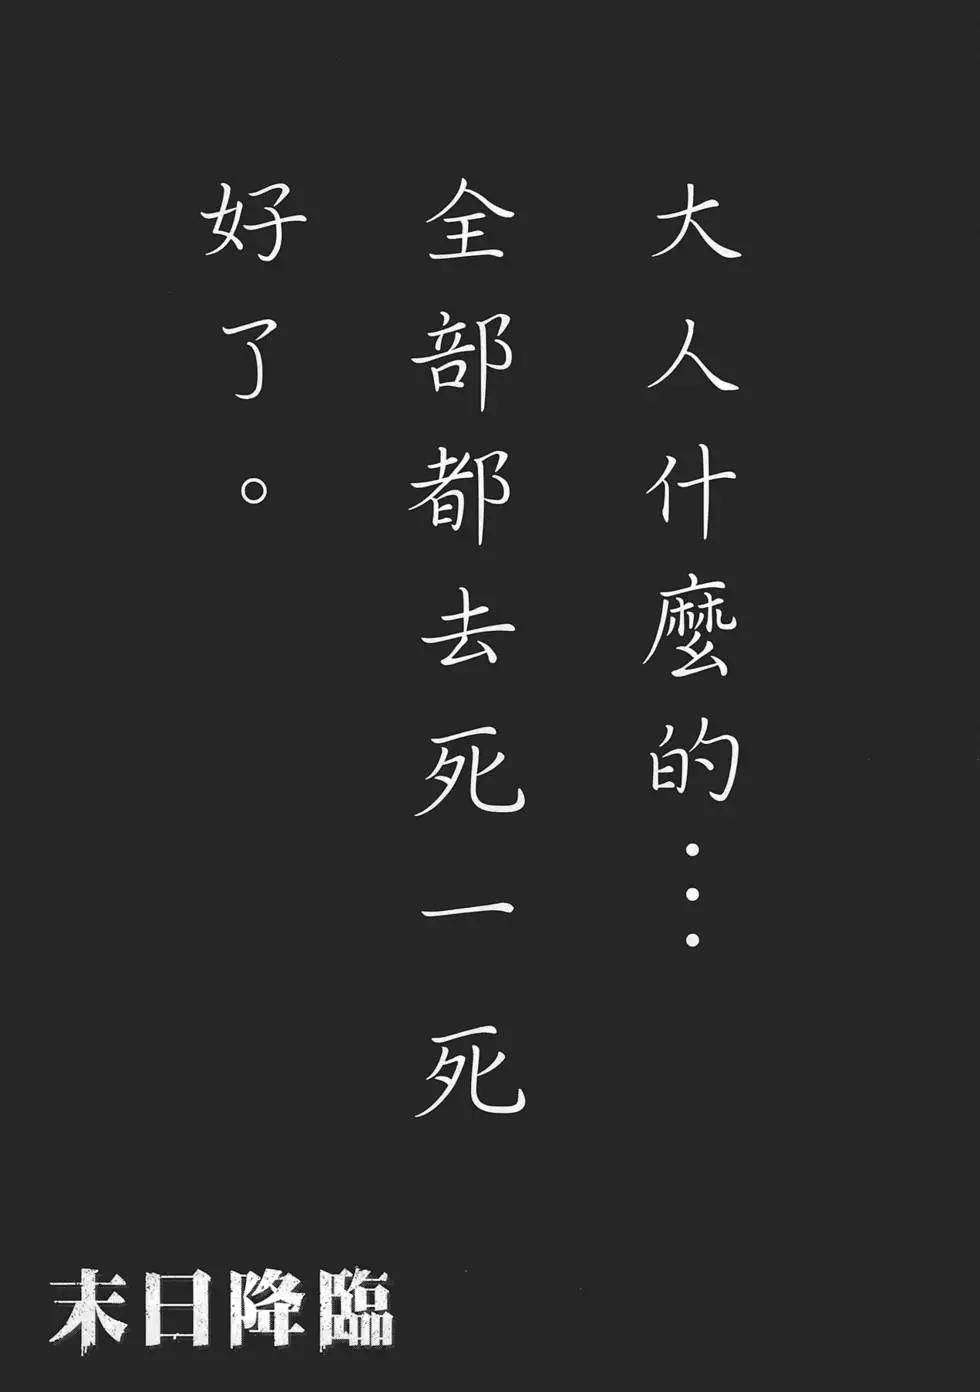 大人什麼的…
全部都去死一死
好了。
末日降臨